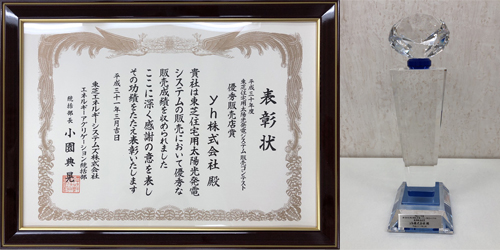 表彰状
平成三十年度
東芝住宅用太陽光発電システム販売コンテスト
優秀販売店賞
yh株式会社 殿
貴社は東芝住宅用太陽光発電
システムの販売において優秀な
販売成績を収められました
ここに深く感謝の意を表し
その功績をたたえ表彰いたします
平成三十一年三月吉日
東芝エネルギーシステムズ株式会社
エネルギーアグリゲーション統括部
統括部長 小園典晃